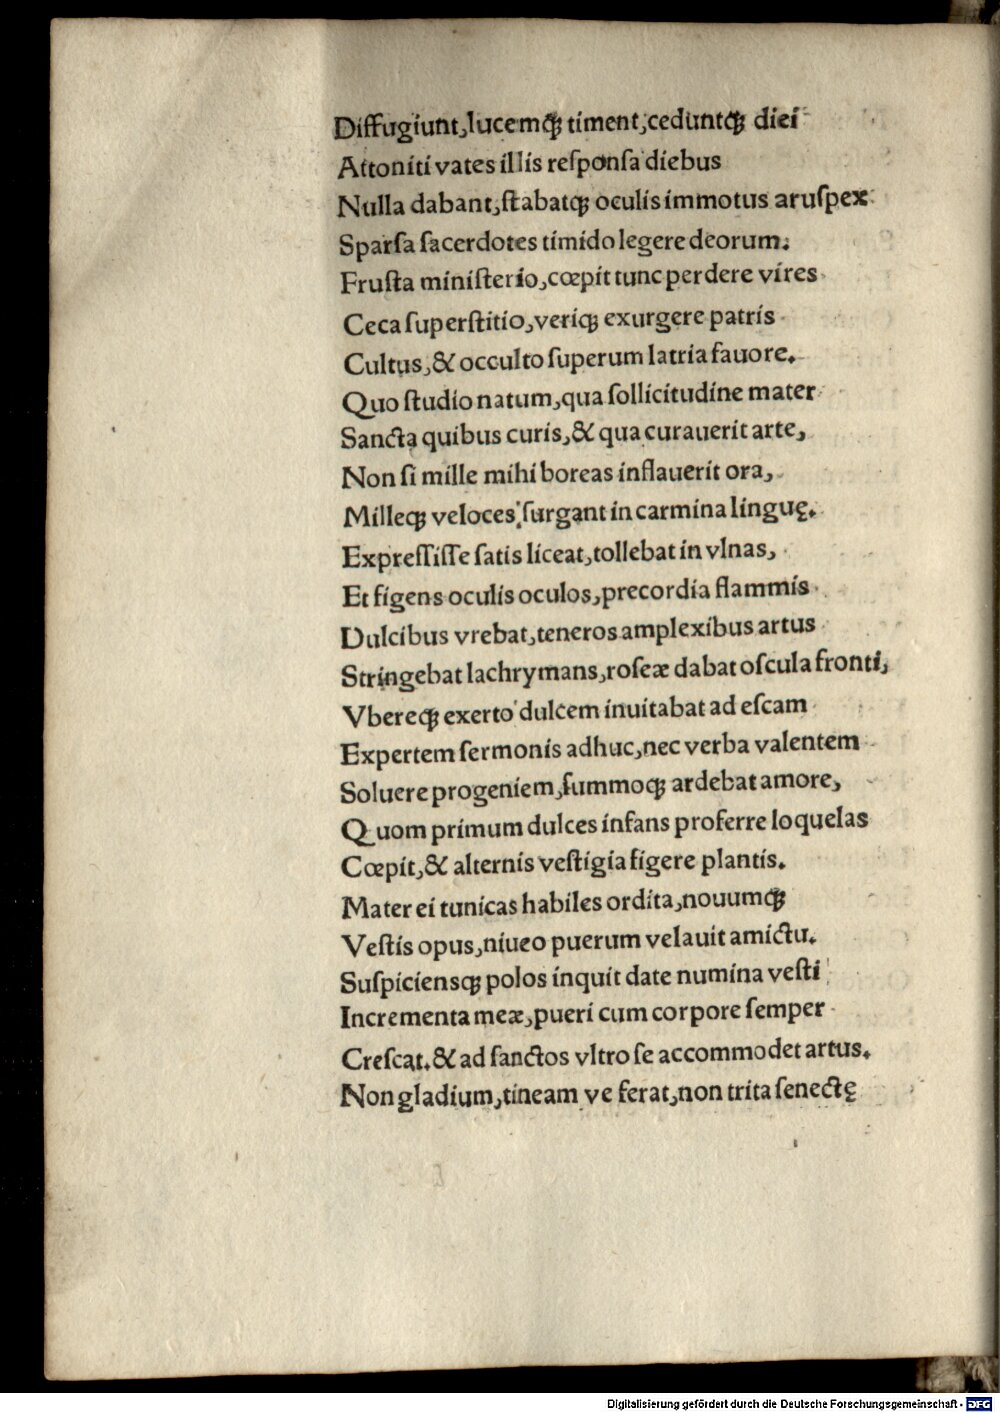 Diffugiunt,lucemqꝫ timent,ceduntqꝫ diei
Attoniti vates illis reſponſa diebus
Nulla dabant,ſtabatqꝫ oculis immotus aruſpex
Sparſa ſacerdotes timido legere deorum.
Fruſta miniſterio,cœpit tunc perdere vires
Ceca ſuperſtitio,veriqꝫ exurgere patris
Cultus,& occulto ſuperum latria fauore.
Quo ſtudio natum,qua ſollicitudine mater
Sancta quibus curis,& qua curauerit arte,
Non ſi mille mihi boreas inflauerit ora,
Milleqꝫ veloces ſurgant in carmina linguę.
Expreſſiſſe ſatis liceat,tollebat in vlnas,
Et figens oculis oculos,precordia flammis
Dulcibus vrebat,teneros amplexibus artus
Stringebat lachrymans,roſeæ dabat oſcula fronti,
Vbereqꝫ exerto dulcem inuitabat ad eſcam
Expertem ſermonis adhuc,nec verba valentem
Soluere progeniem,ſummoqꝫ ardebat amore,
Quom primum dulces infans proferre loquelas
Cœpit,& alternis veſtigia figere plantis.
Mater ei tunicas habiles ordita,nouumqꝫ
Veſtis opus,niueo puerum velauit amictu.
Suſpiciensqꝫ polos inquit date numina veſti
Incrementa meæ,pueri cum corpore ſemper
Creſcat.& ad ſanctos vltro ſe accommodet artus.
Non gladium,tineam ve ferat,non trita ſenectę
Digitalisierung gefördert durch die Deutsche Forschungsgemeinschaft - DFG